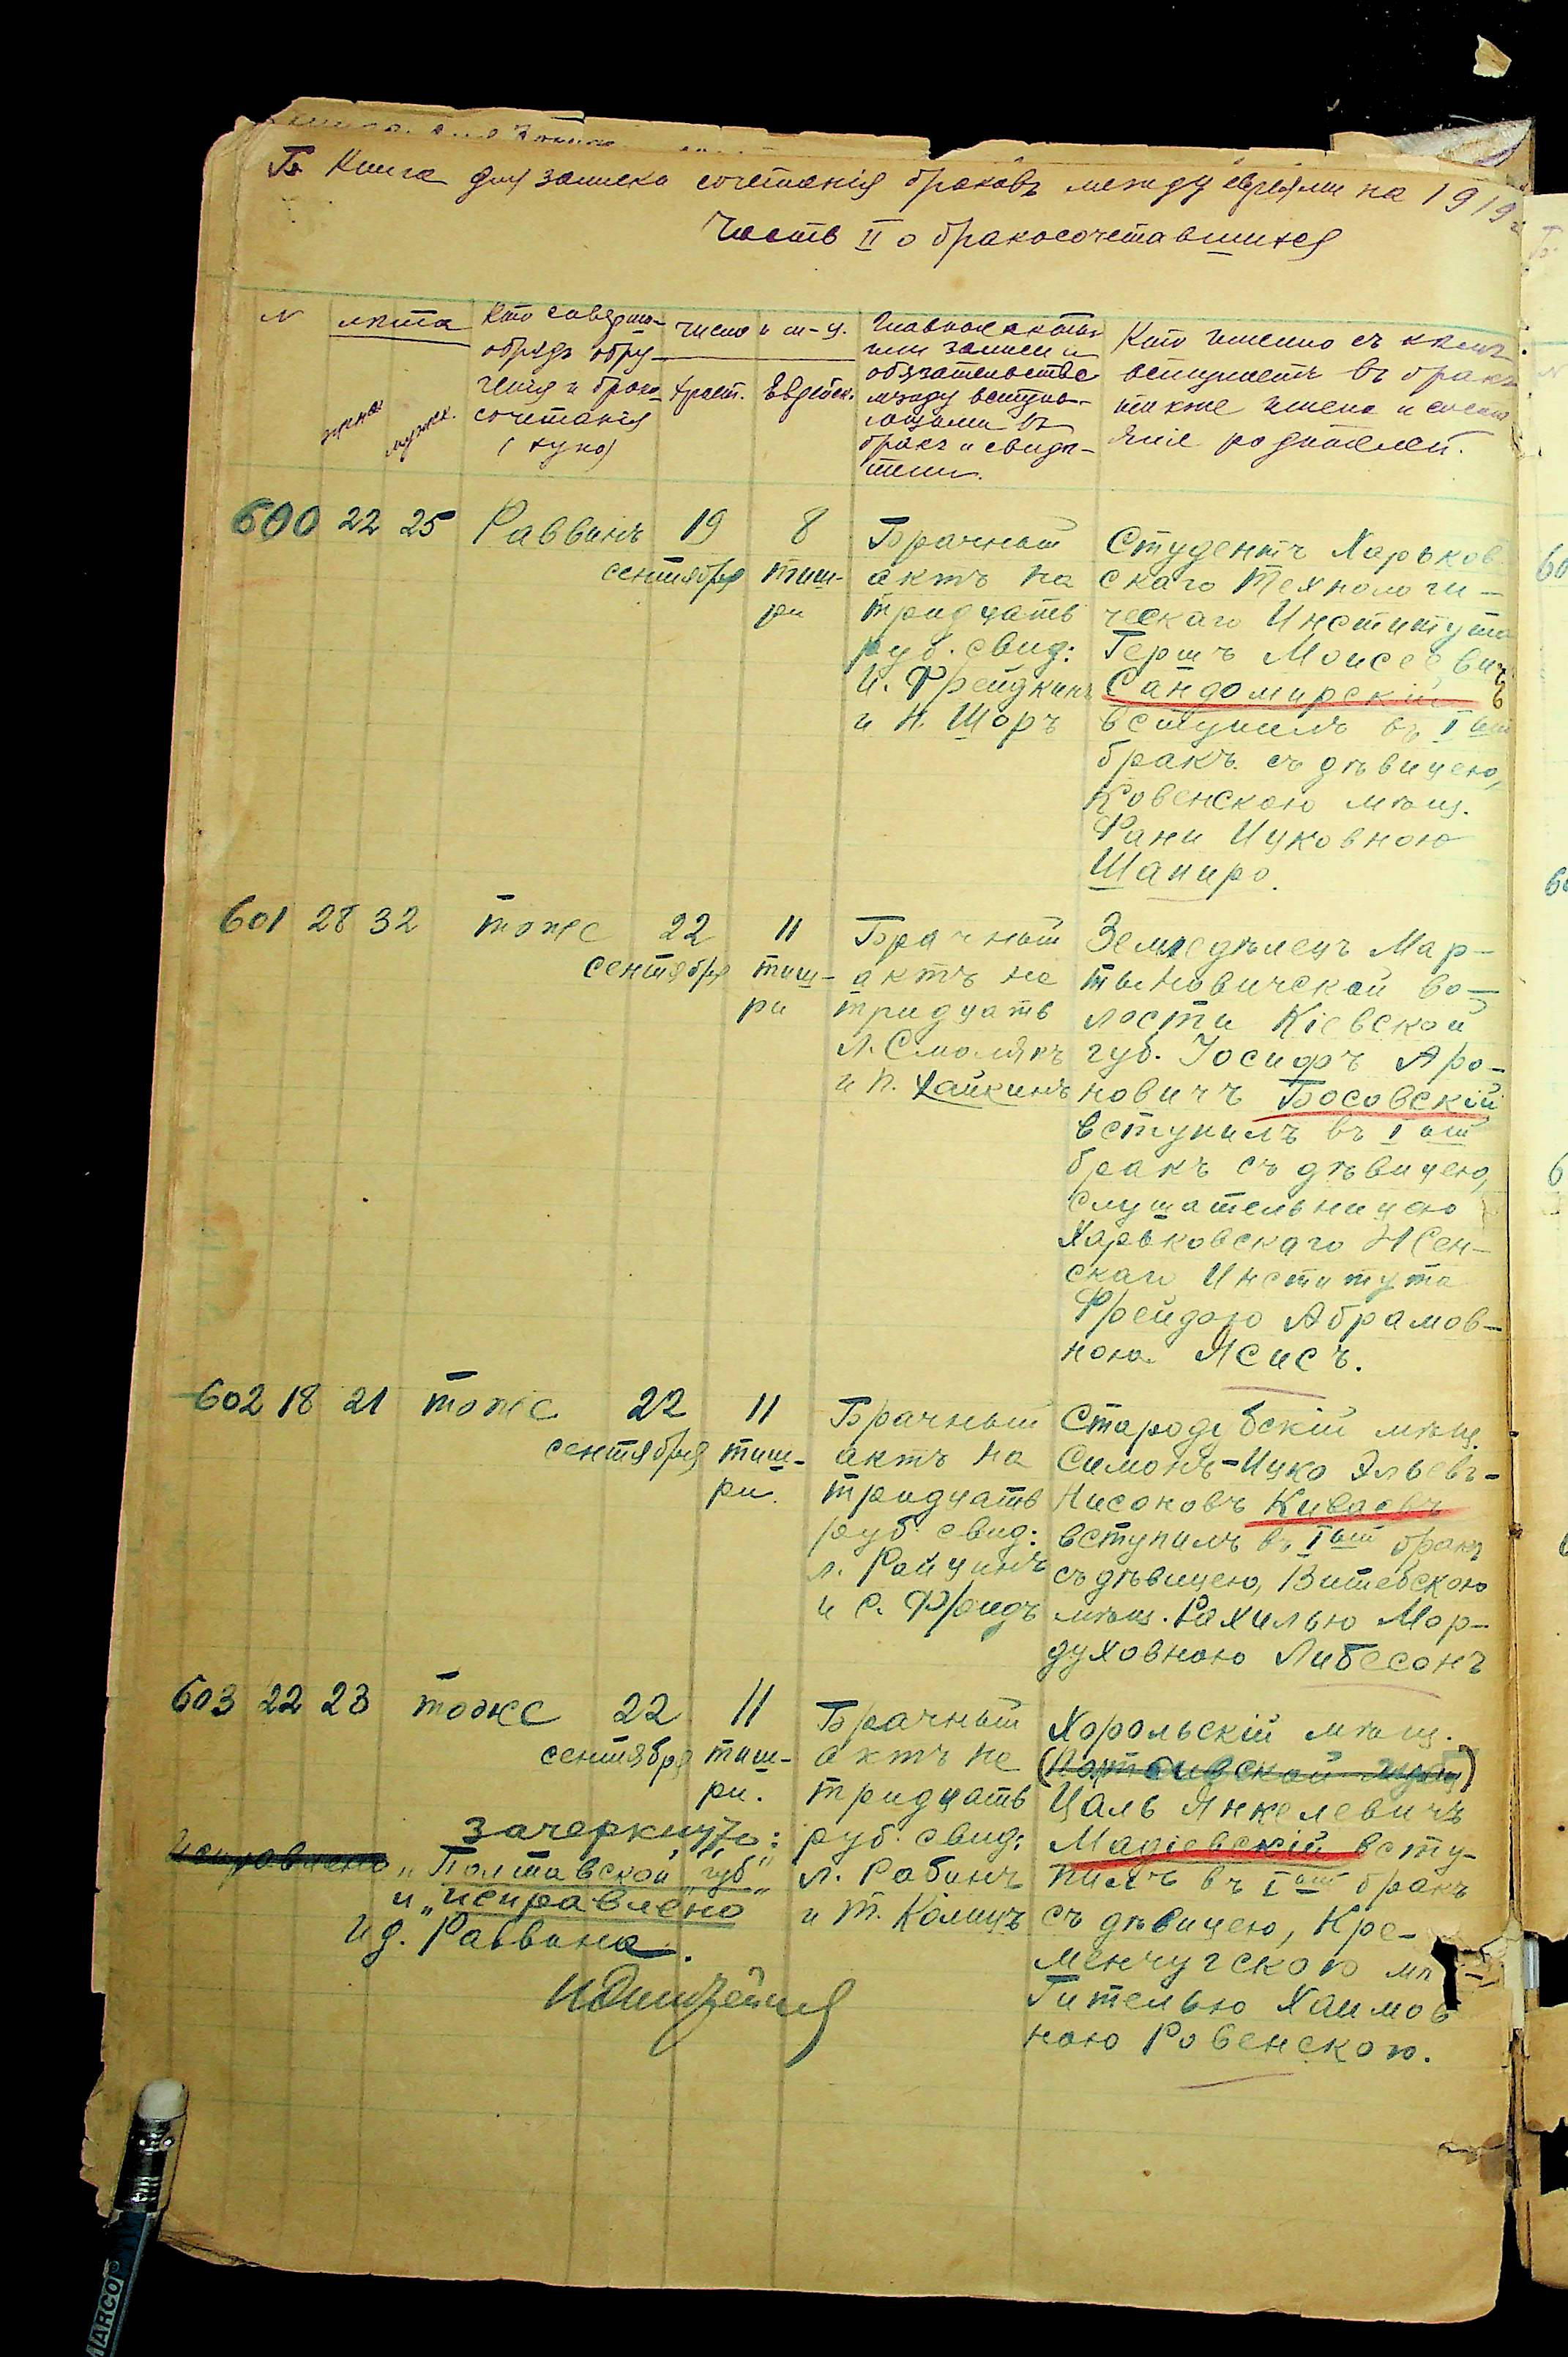 Книга для записки сочетанія браковъ между евреями на 1919
Часть II о бракосочетавшихся
№
лѣта
женск.
мужск.
Кто соверш-
обрядъ обру
ченія и брако
сочетанія
(хупо)
число и м-ц.
Христ.
Еврейск.
Главное акты
или записи и
обязательства
между вступа-
ющими въ
бракъ и свидѣ-
тели.
Кто именно съ кемъ
вступаетъ въ бракъ
также имена и состо
яніе родителей.
600 22 25 Раввинъ 19 8
сентября тиш-
ри
Брачный
актъ на
тридцать
руб. свид:
И. Фрейдкинъ
и Н. Шоръ
Студентъ Харьков
скаго Технологи-
ческаго Института
Гершъ Моисеевичъ
Сандомирскій
вступилъ въ Iый
бракъ съ дѣвицею,
Ковенскою мѣщ.
Фани Ицковною
Шапиро.
601 28 32 тоже 22 11
сентября тиш-
ри
Брачный
актъ на
тридцать
Л. Смолякъ
и П. Хайкинъ
Земледѣлецъ Мар-
тыновичской во-
лости Кіевской
губ. Іосифъ Аро-
новичъ Босовскій
вступилъ въ Iый
бракъ съ дѣвицею,
слушательницею
Харьковскаго Жен-
скаго Института
Фрейдою Абрамов-
ною Ясисъ.
602 18 21 тоже 22 11
сентября тиш-
ри.
Брачный
актъ на
тридцать
руб. свид:
Л. Райцинъ
и С. Фридъ
Стародубскій мѣщ.
Симонъ-Ицко Эльевъ-
Нисоновъ Киваевъ
вступилъ въ Iый бракъ
съ дѣвицею, Витебскою
мѣщ. Рахилью Мор-
духовною Либесонъ
603 22 23 тоже 22 11
сентября тиш-
ри.
Брачный
актъ на
тридцать
руб. свид:
Л. Рабинъ
и Т. Калицъ
Хорольскій мѣщ.
Цаль Янкелевичъ
Мадіевскій всту-
пилъ въ Iый бракъ
съ дѣвицею, Кре-
менчугскою мѣ
Гителью Хаимов
ною Ровенскою.
зачеркнуто:
"Полтавской "губ"
и "исправлено
И д. Раввина.
MARCO